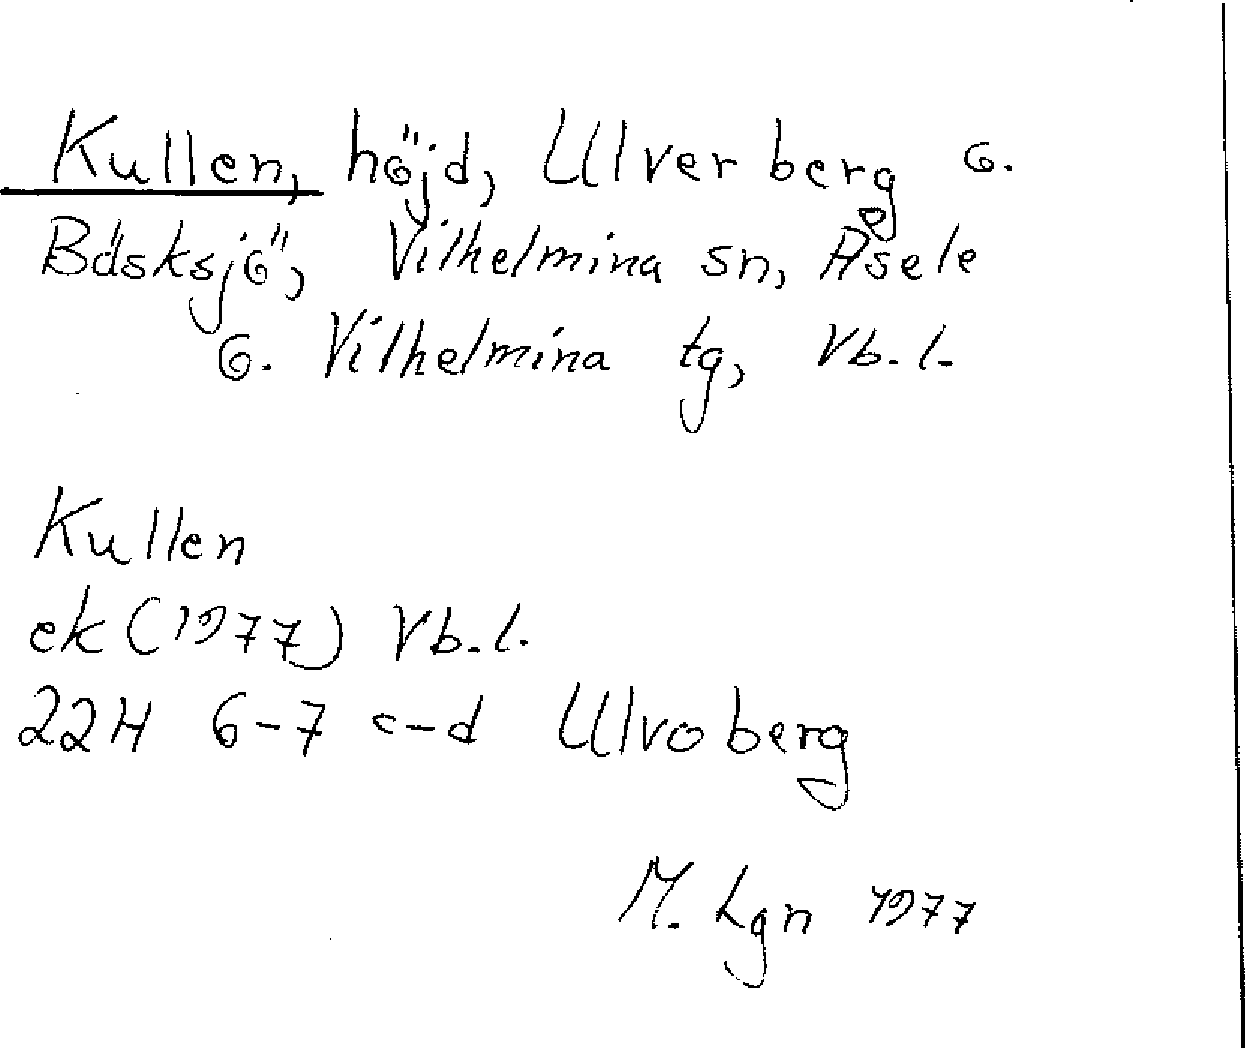 Kullen, höjd, Ulverberg o.
Bäsksjö, Vilhelmina sn, Åsele
o. Vilhelmina tg, Vb. l.
Kullen
ek (1977) Vb. l.
22H 6-7 c-d Ulvoberg
M. Lgn 1977